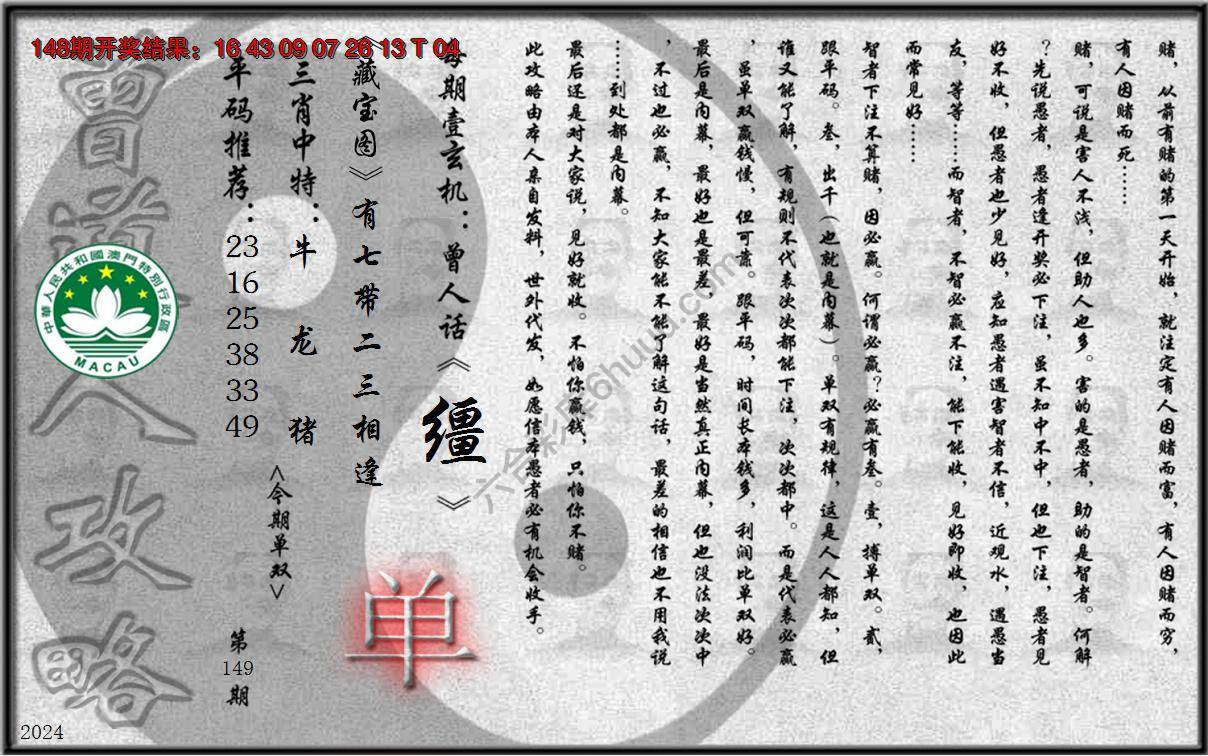 148期开奖结果：16 43 09 07 26 13 T 04
赌，从前有赌的第一天开始，就注定有人因赌而富，有人因赌而穷，
有人因赌而死……
赌，可说是害人不浅，但助人也多。害的是愚者，助的是智者。何解
？先说愚者，愚者逢开奖必下注，虽不知中不中，但也下注，愚者见
好不收，但愚者也少见好，应知愚者遇害智者不信，近观水，遇愚当
友，等等……而智者，不智必赢不注，能下能收，见好即收，也因此
而常见好……
智者下注不算赌，因必赢。何谓必赢？必赢有叁。壹，搏单双。贰，
跟平码。叁，出千（也就是内幕）。单双有规律，这是人人都知，但
谁又能了解，有规则不代表次次都能下注，次次都中。而是代表必赢
，虽单双赢钱慢，但可靠。跟平码，时间长本钱多，利润比单双好。
最后是内幕，最好也是最差，最好是当然真正内幕，但也没法次次中
，不过也必赢，不知大家能不能了解这句话，最差的相信也不用我说
……到处都是内幕。
最后还是对大家说，见好就收。不怕你赢钱，只怕你不赌。
此攻略由本人亲自发料，世外代发，如愿信本愚者必有机会收手。
每期壹玄机：曾人话《缰》
《藏宝图》有七带二三相逢
单
三肖中特：牛 龙 猪
<今期单双>
平码推荐：23 16 25 38 33 49
第149期
曾道人攻略
中華人民共和國澳門特別行政區
MACAU
六合彩库6huuu.com
2024